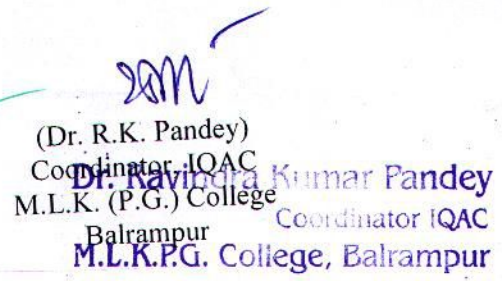 (Dr. R.K. Pandey)
Coordinator, IQAC
M.L.K. (P.G.) College
Balrampur
Dr. Ravindra Kumar Pandey
Coordinator IQAC
M.L.K.P.G. College, Balrampur